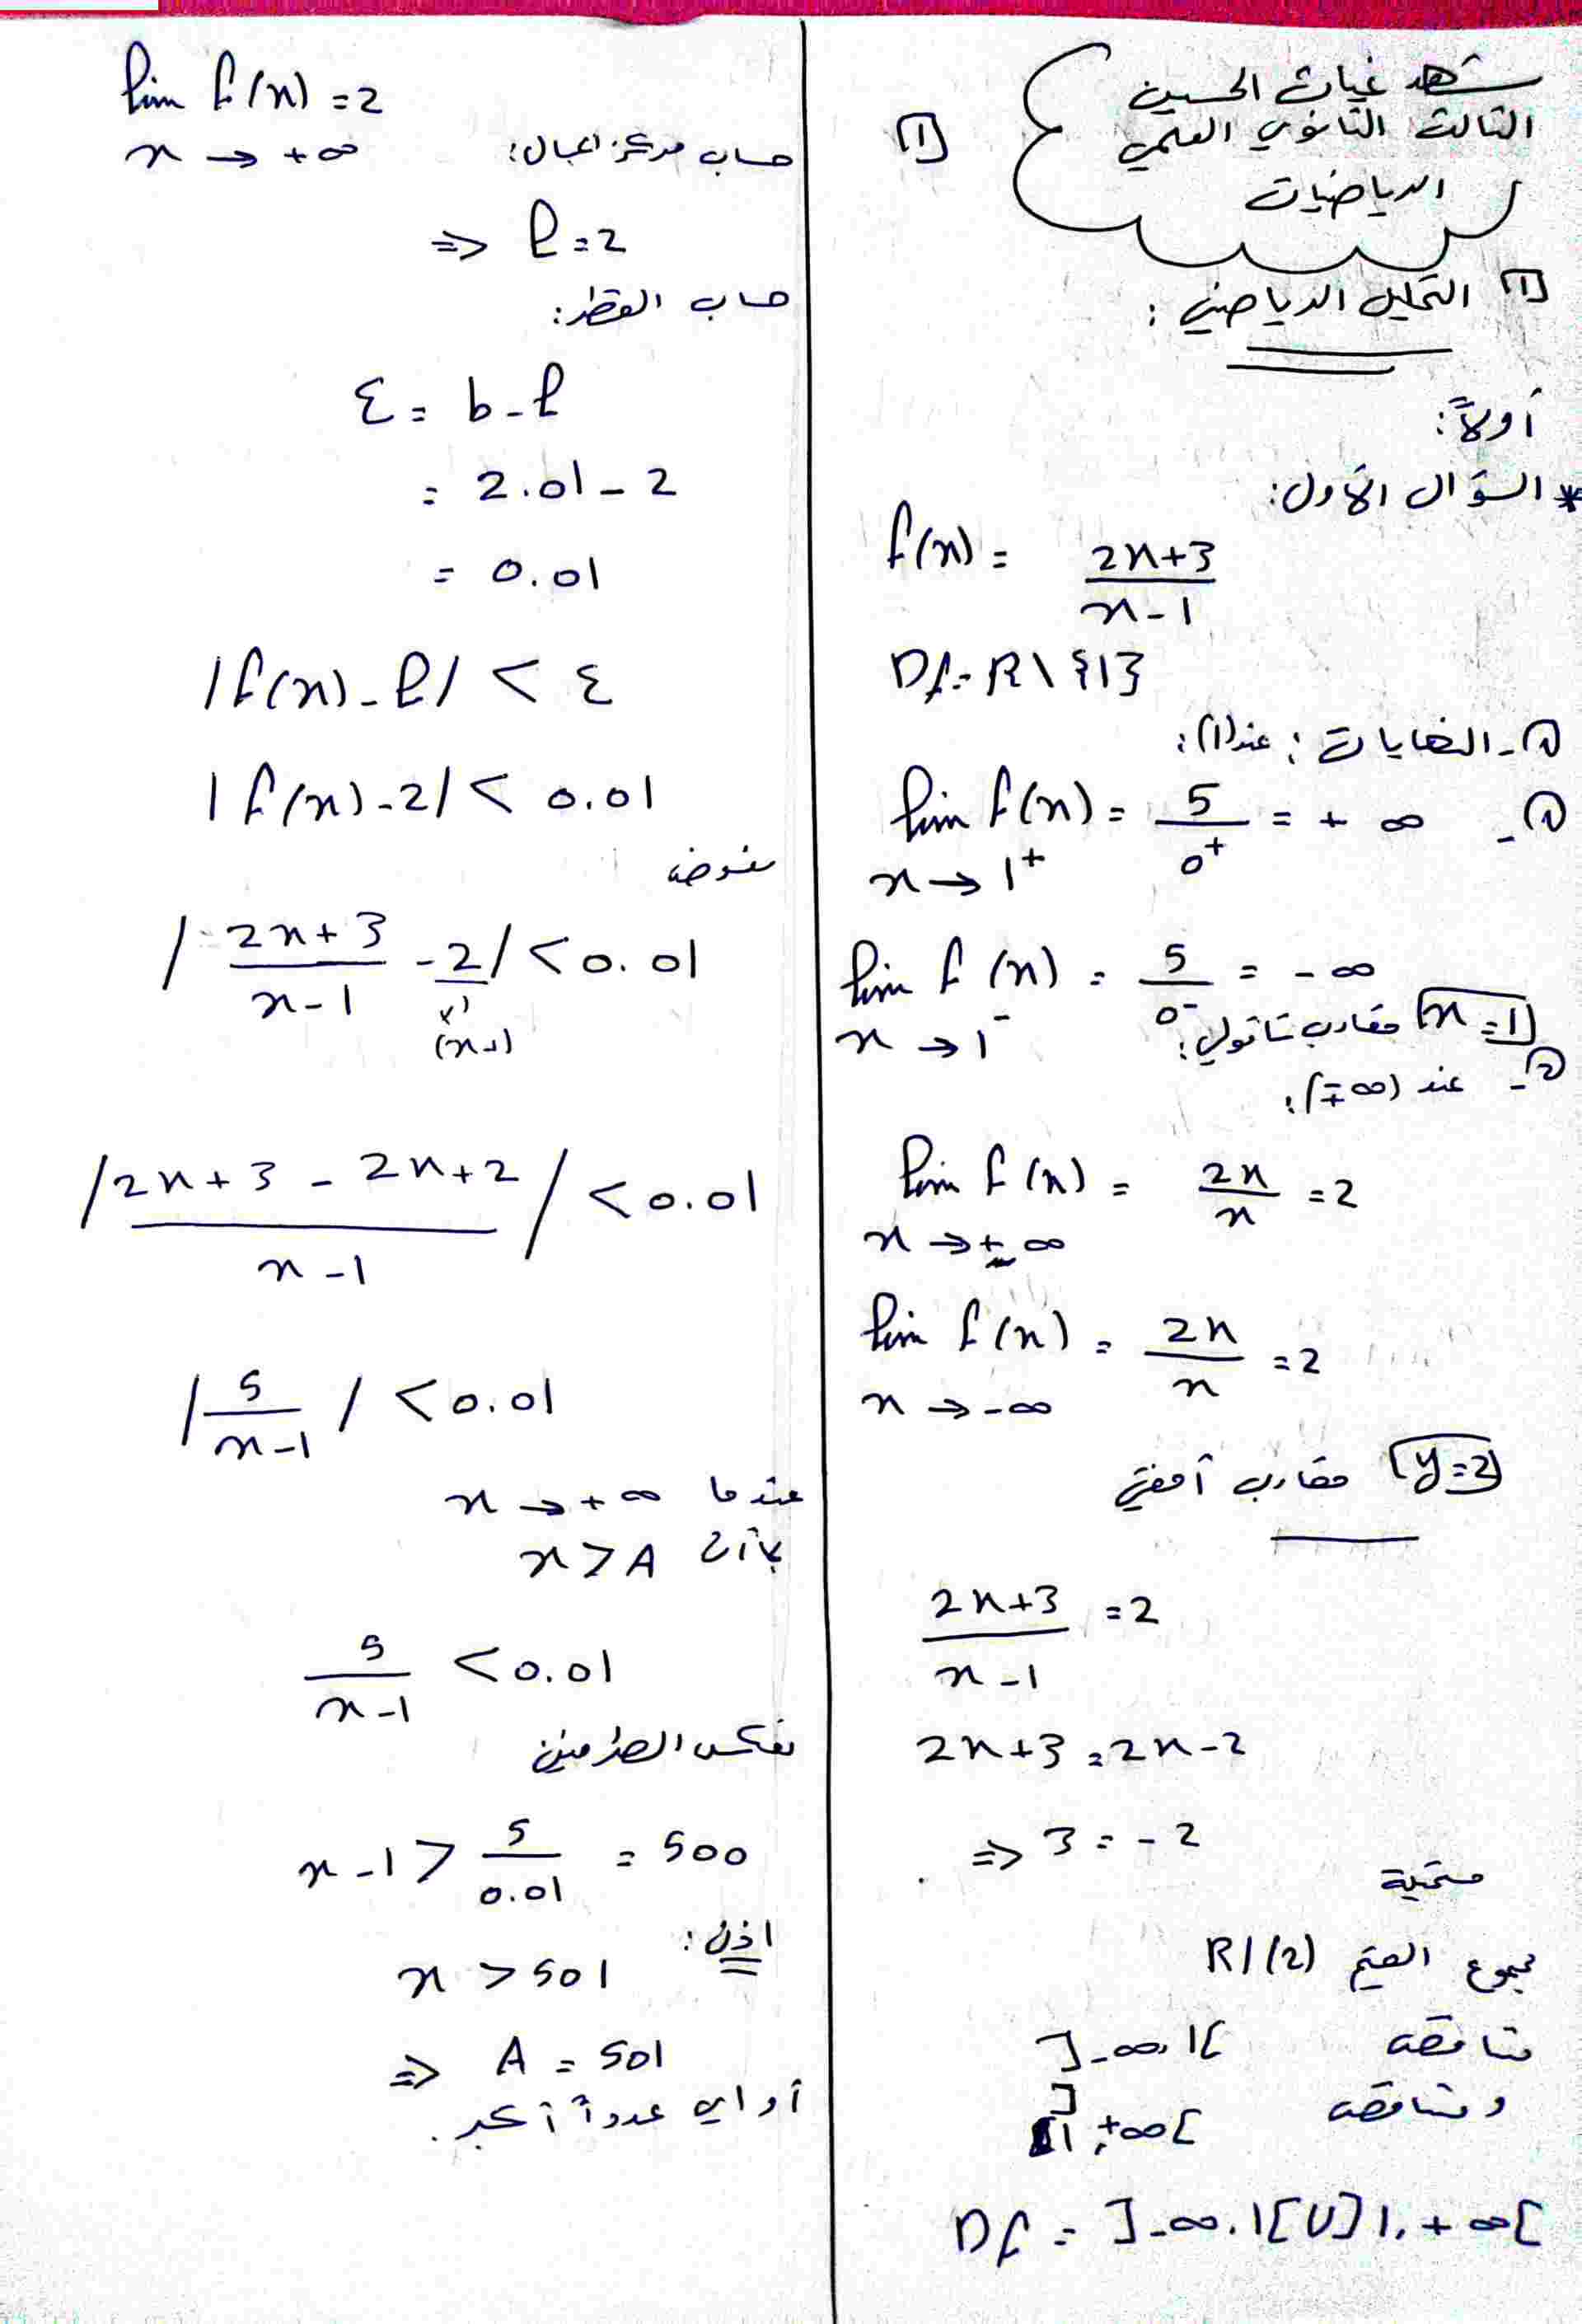 شهد غياث الحسين
الثالث الثانوي العلمي
الرياضيات
[1]
[1] التحليل الرياضي :
أولاً:
* السؤال الأول:
f(x) = \frac{2x+3}{x-1}
Df = R \ {1}
①- النهايات : عند (1):
①- lim f(x) = \frac{5}{0^+} = + ∞
x → 1^+
lim f(x) = \frac{5}{0^-} = - ∞
x → 1^-
x=1 مقارب شاقولي:
②- عند (∓∞):
lim f(x) = \frac{2x}{x} = 2
x → + ∞
lim f(x) = \frac{2x}{x} = 2
x → - ∞
y=2 مقارب أفقي
\frac{2x+3}{x-1} = 2
2x+3 = 2x-2
⇒ 3 = -2
مستحيلة
مجموع القيم R\(2)
متناقصة ]-∞, 1[
ومتناقصة ]1, +∞[
Df = ]-∞, 1[ U ]1, +∞[
lim f(x) = 2
x → + ∞
حساب مركز المجال:
⇒ l = 2
حساب القطر:
ε = b - l
= 2.01 - 2
= 0.01
|f(x) - l| < ε
|f(x) - 2| < 0.01
نعوضه
|\frac{2x+3}{x-1} - \frac{2}{×1}| < 0.01
(x-1)
|\frac{2x+3 - 2x+2}{x-1}| < 0.01
|\frac{5}{x-1}| < 0.01
عندما x → + ∞
بما أن x > A
\frac{5}{x-1} < 0.01
نعكس الطرفين
x-1 > \frac{5}{0.01} = 500
اذن :
x > 501
⇒ A = 501
أو اي عدداً أكبر .